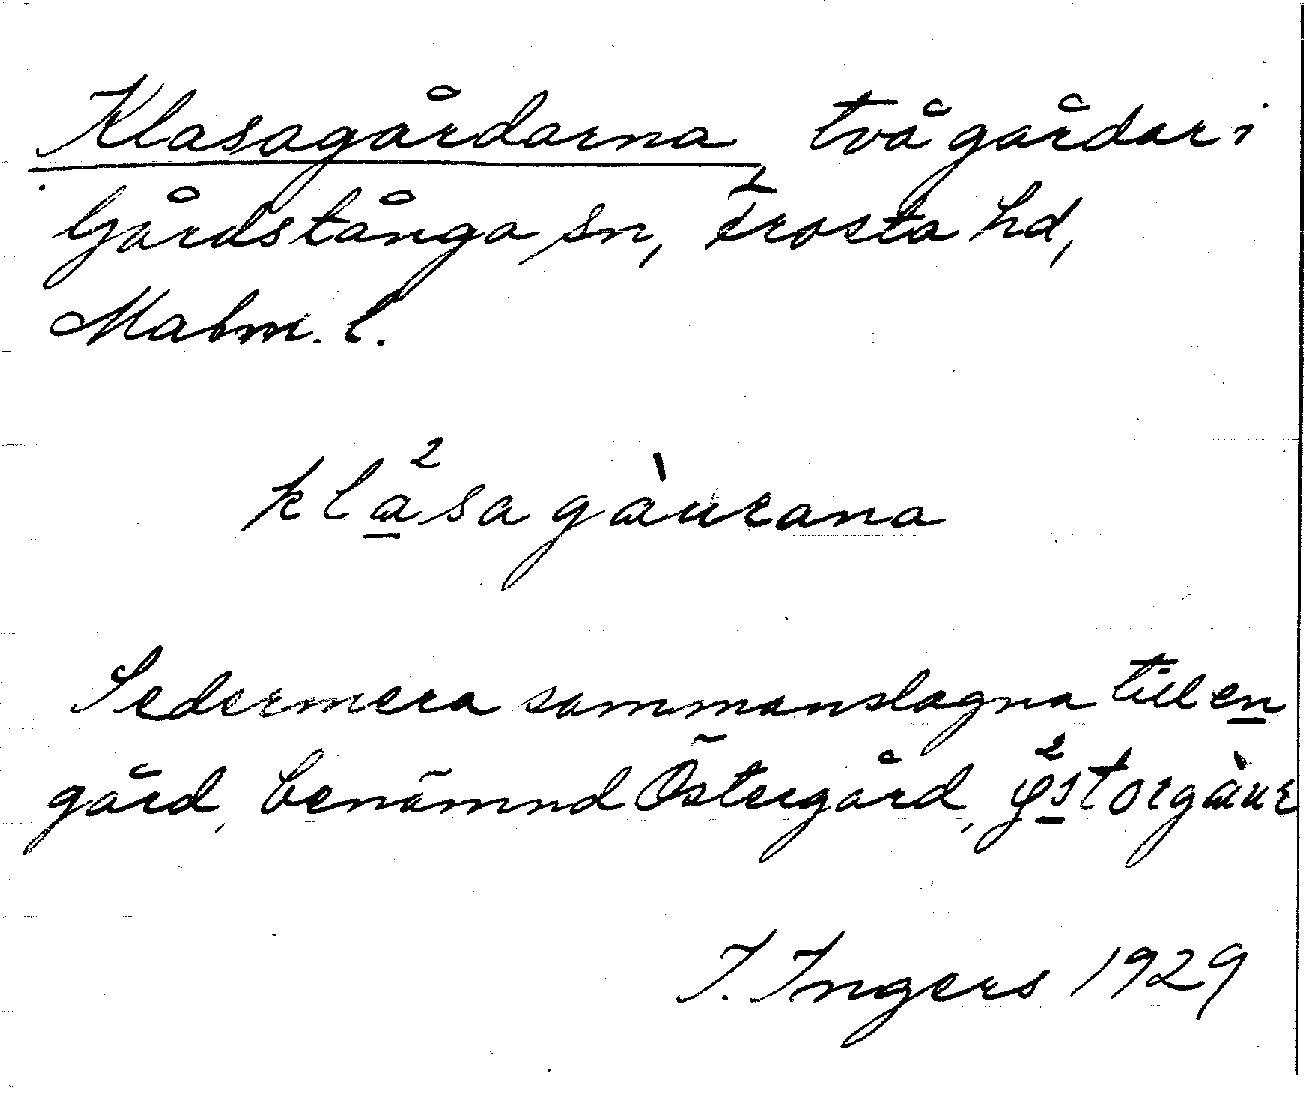 Klasagårdarna, två gårdar i
Gårdstånga sn, Frosta hd,
Malm. l.
kla²sagàurana
Sedermera sammanslagna till en
gård, benämnd Östergård, ø²storgàur
I. Ingers 1929